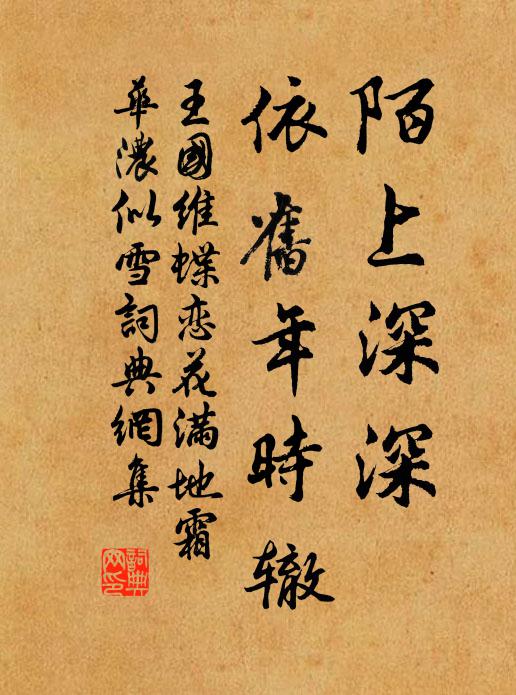 陌上深深
依舊年時辙
王國維蝶恋花满地霜
華濃似雪詞典網集
詞典网印